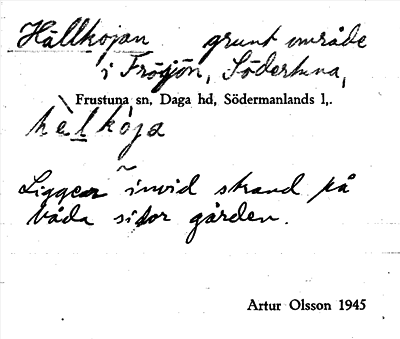 Hällkojan grunt område
i Frösjön, Södertuna,
Frustuna sn, Daga hd, Södermanlands l,.
hèlkòja
Liggear invid strand på
båda sidor gården.
Artur Olsson 1945